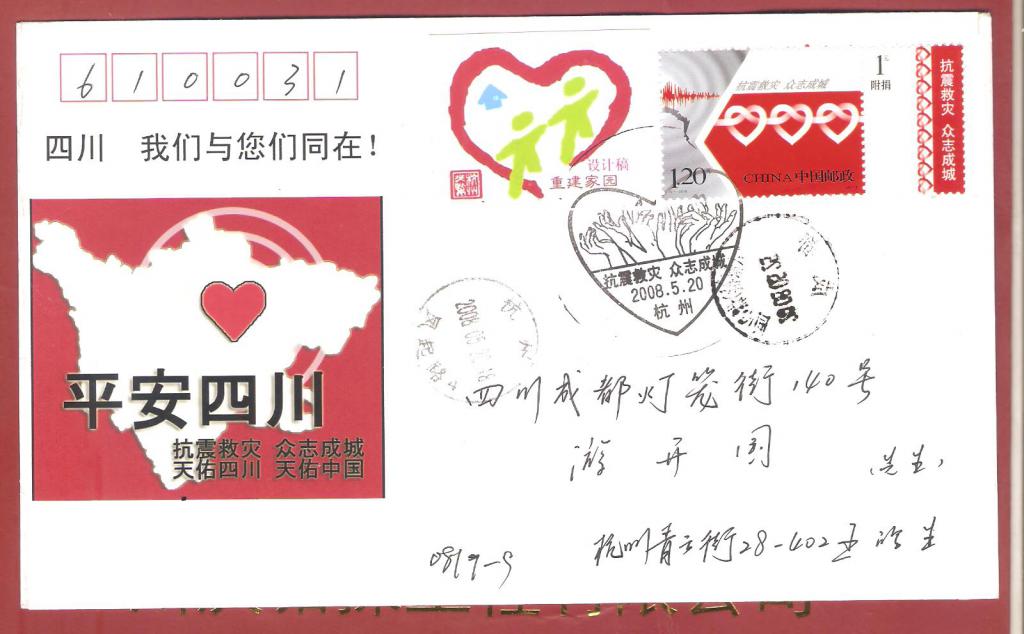 610031
四川 我们与您们同在!
设计稿
重建家园
抗震救灾 众志成城
1元
附捐
1.20
CHINA 中国邮政
抗震救灾 众志成城
抗震救灾 众志成城
2008.5.20
杭州
平安四川
抗震救灾 众志成城
天佑四川 天佑中国
四川成都灯笼街140号
游开国 先生
杭州青云街28-402
0819-9